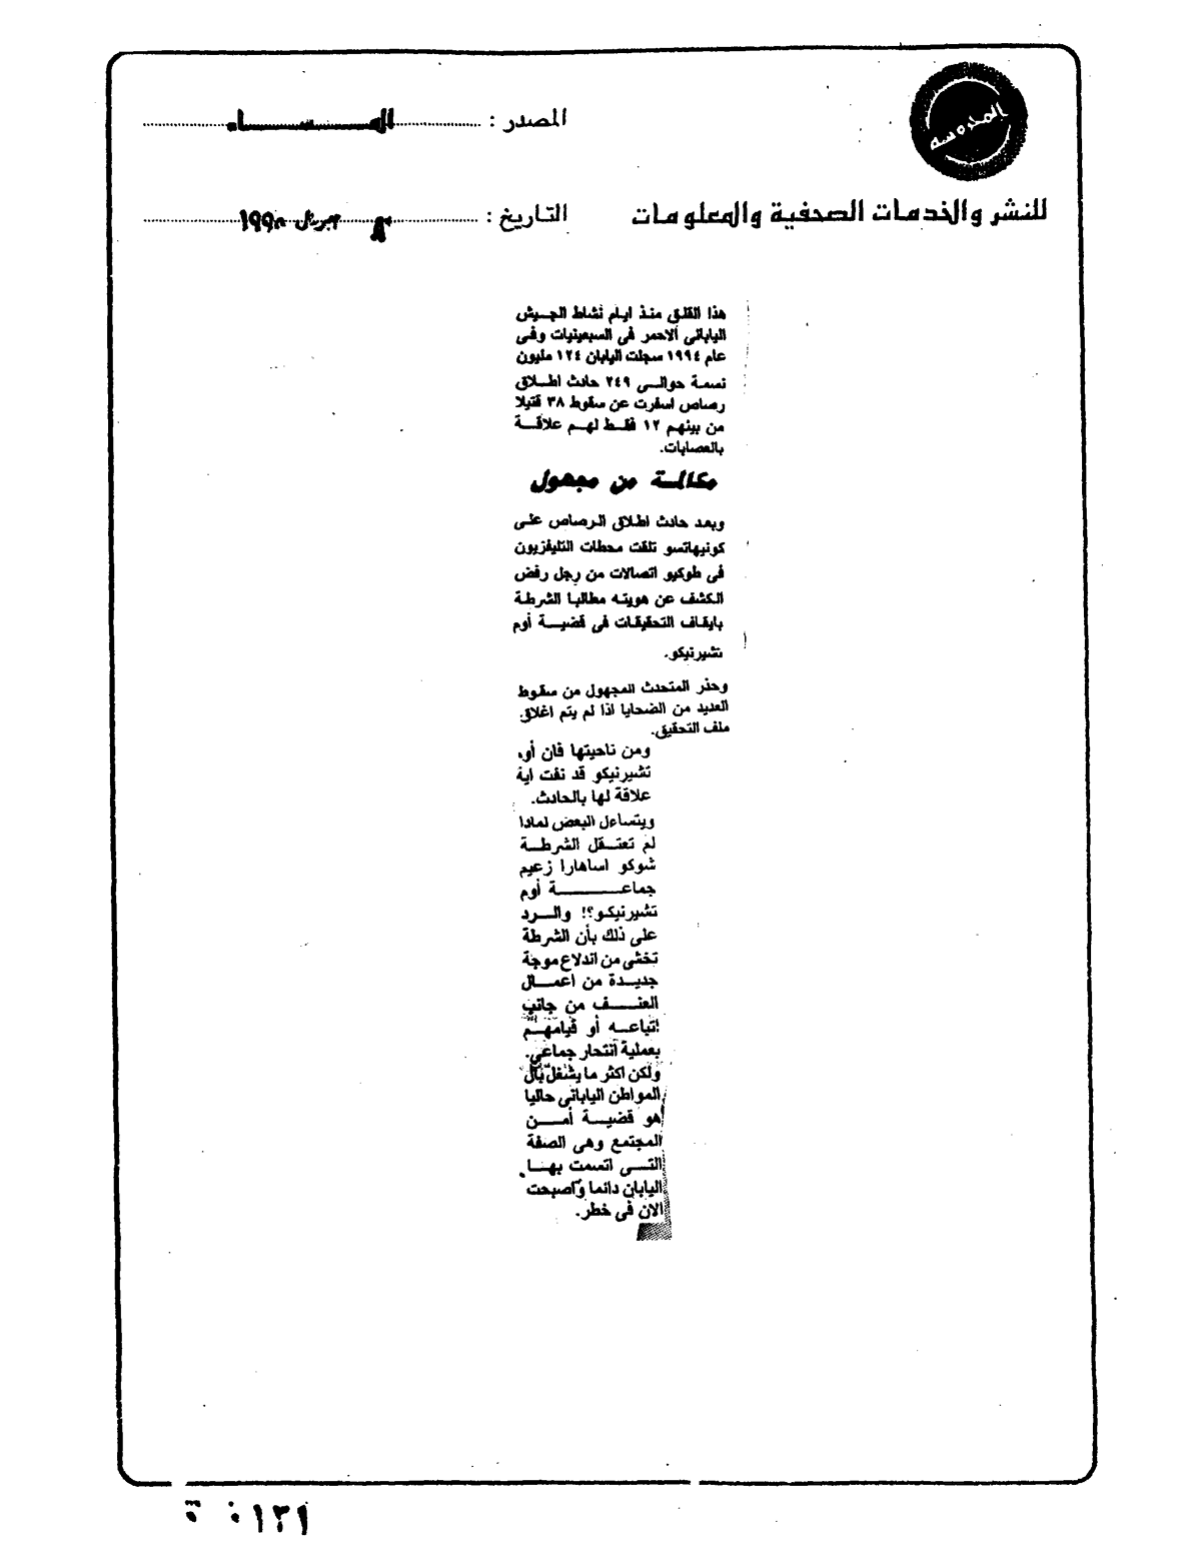 المحروسة
للنشر والخدمات الصحفية والمعلومات
المصدر : المساء
التاريخ :
هذا القلق منذ ايام نشاط الجيش
اليابانى الاحمر فى السبعينيات وفى
عام ١٩٩٤ سجلت اليابان ١٢٤ مليون
نسمة حوالى ٢٤٩ حادث اطلاق
رصاص اسفرت عن سقوط ٣٨ قتيلا
من بينهم ١٢ فقط لهم علاقة
بالعصابات.
مكالمة من مجهول
وبعد حادث اطلاق الرصاص على
كونيهاتسو تلقت محطات التليفزيون
فى طوكيو اتصالات من رجل رفض
الكشف عن هويته مطالبا الشرطة
بايقاف التحقيقات فى قضية أوم
تشيرنيكو.
وحذر المتحدث المجهول من سقوط
العديد من الضحايا اذا لم يتم اغلاق
ملف التحقيق.
ومن ناحيتها فان أو
تشيرنيكو قد نفت اية
علاقة لها بالحادث.
ويتساءل البعض لماذا
لم تعتقل الشرطة
شوكو اساهارا زعيم
جماعة أوم
تشيرنيكو؟! والرد
على ذلك بأن الشرطة
تخشى من اندلاع موجة
جديدة من اعمال
العنف من جانب
اتباعه أو قيامهم
بعملية انتحار جماعى.
ولكن اكثر ما يشغل بال
المواطن اليابانى حاليا
هو قضية أمن
المجتمع وهى الصفة
التى اتسمت بها
اليابان دائما واصبحت
الان فى خطر.